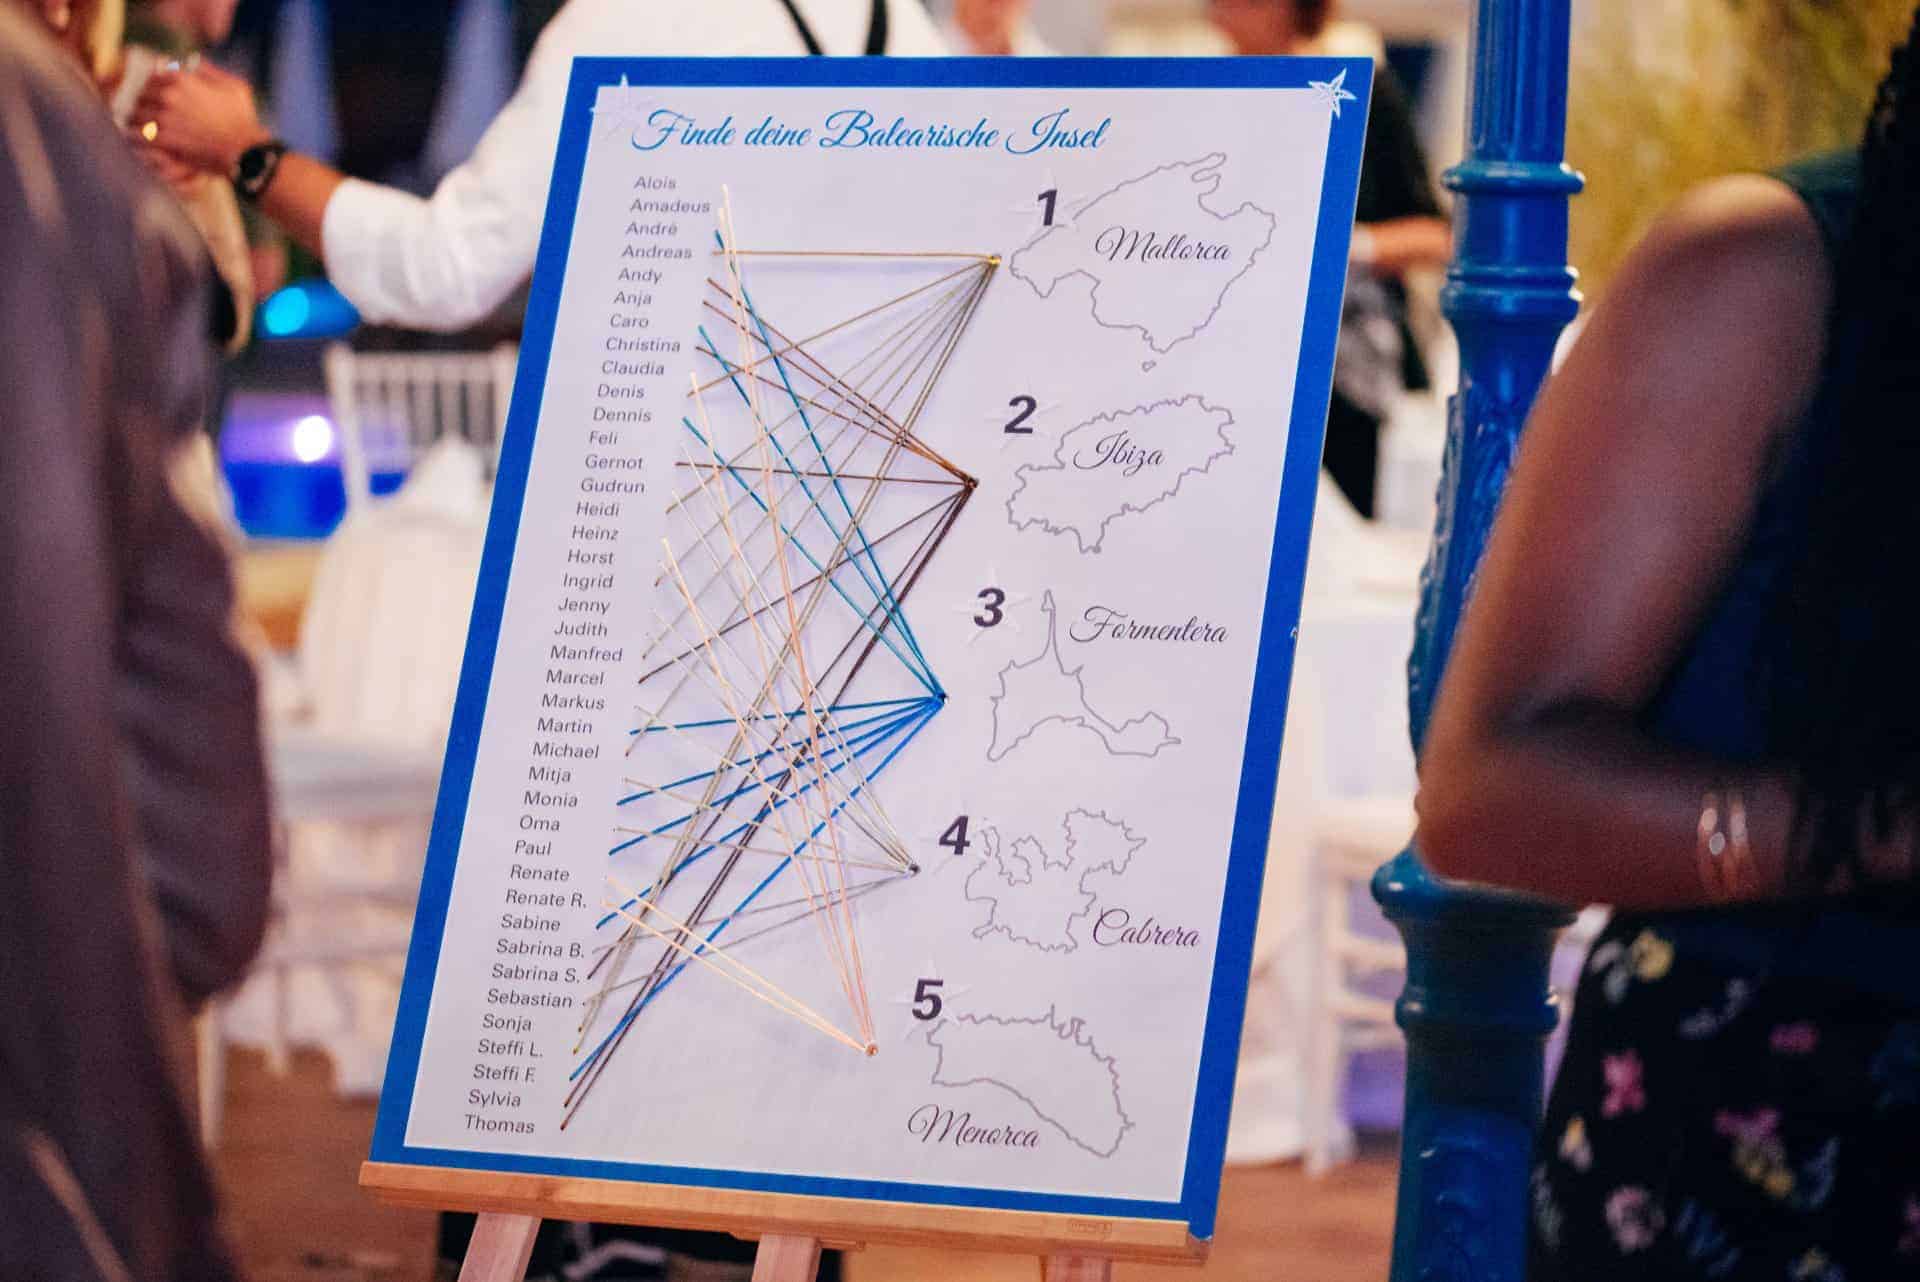 Finde deine Balearische Insel
Alois
Amadeus
André
Andreas
Andy
Anja
Caro
Christina
Claudia
Denis
Dennis
Feli
Gernot
Gudrun
Heidi
Heinz
Horst
Ingrid
Jenny
Judith
Manfred
Marcel
Markus
Martin
Michael
Mitja
Monia
Oma
Paul
Renate
Renate R.
Sabine
Sabrina B.
Sabrina S.
Sebastian
Sonja
Steffi L.
Steffi F.
Sylvia
Thomas
1
Mallorca
2
Ibiza
3
Formentera
4
Cabrera
5
Menorca